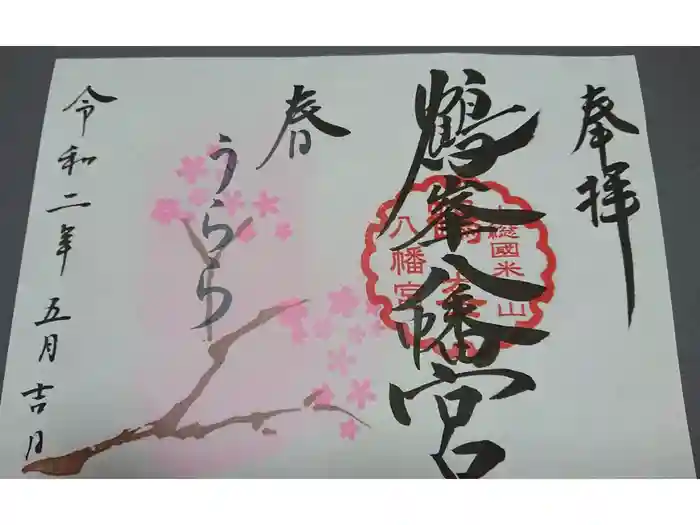 奉拝
鶴峯八幡宮
上総國米山
八幡宮
春
うらら
令和二年五月吉日